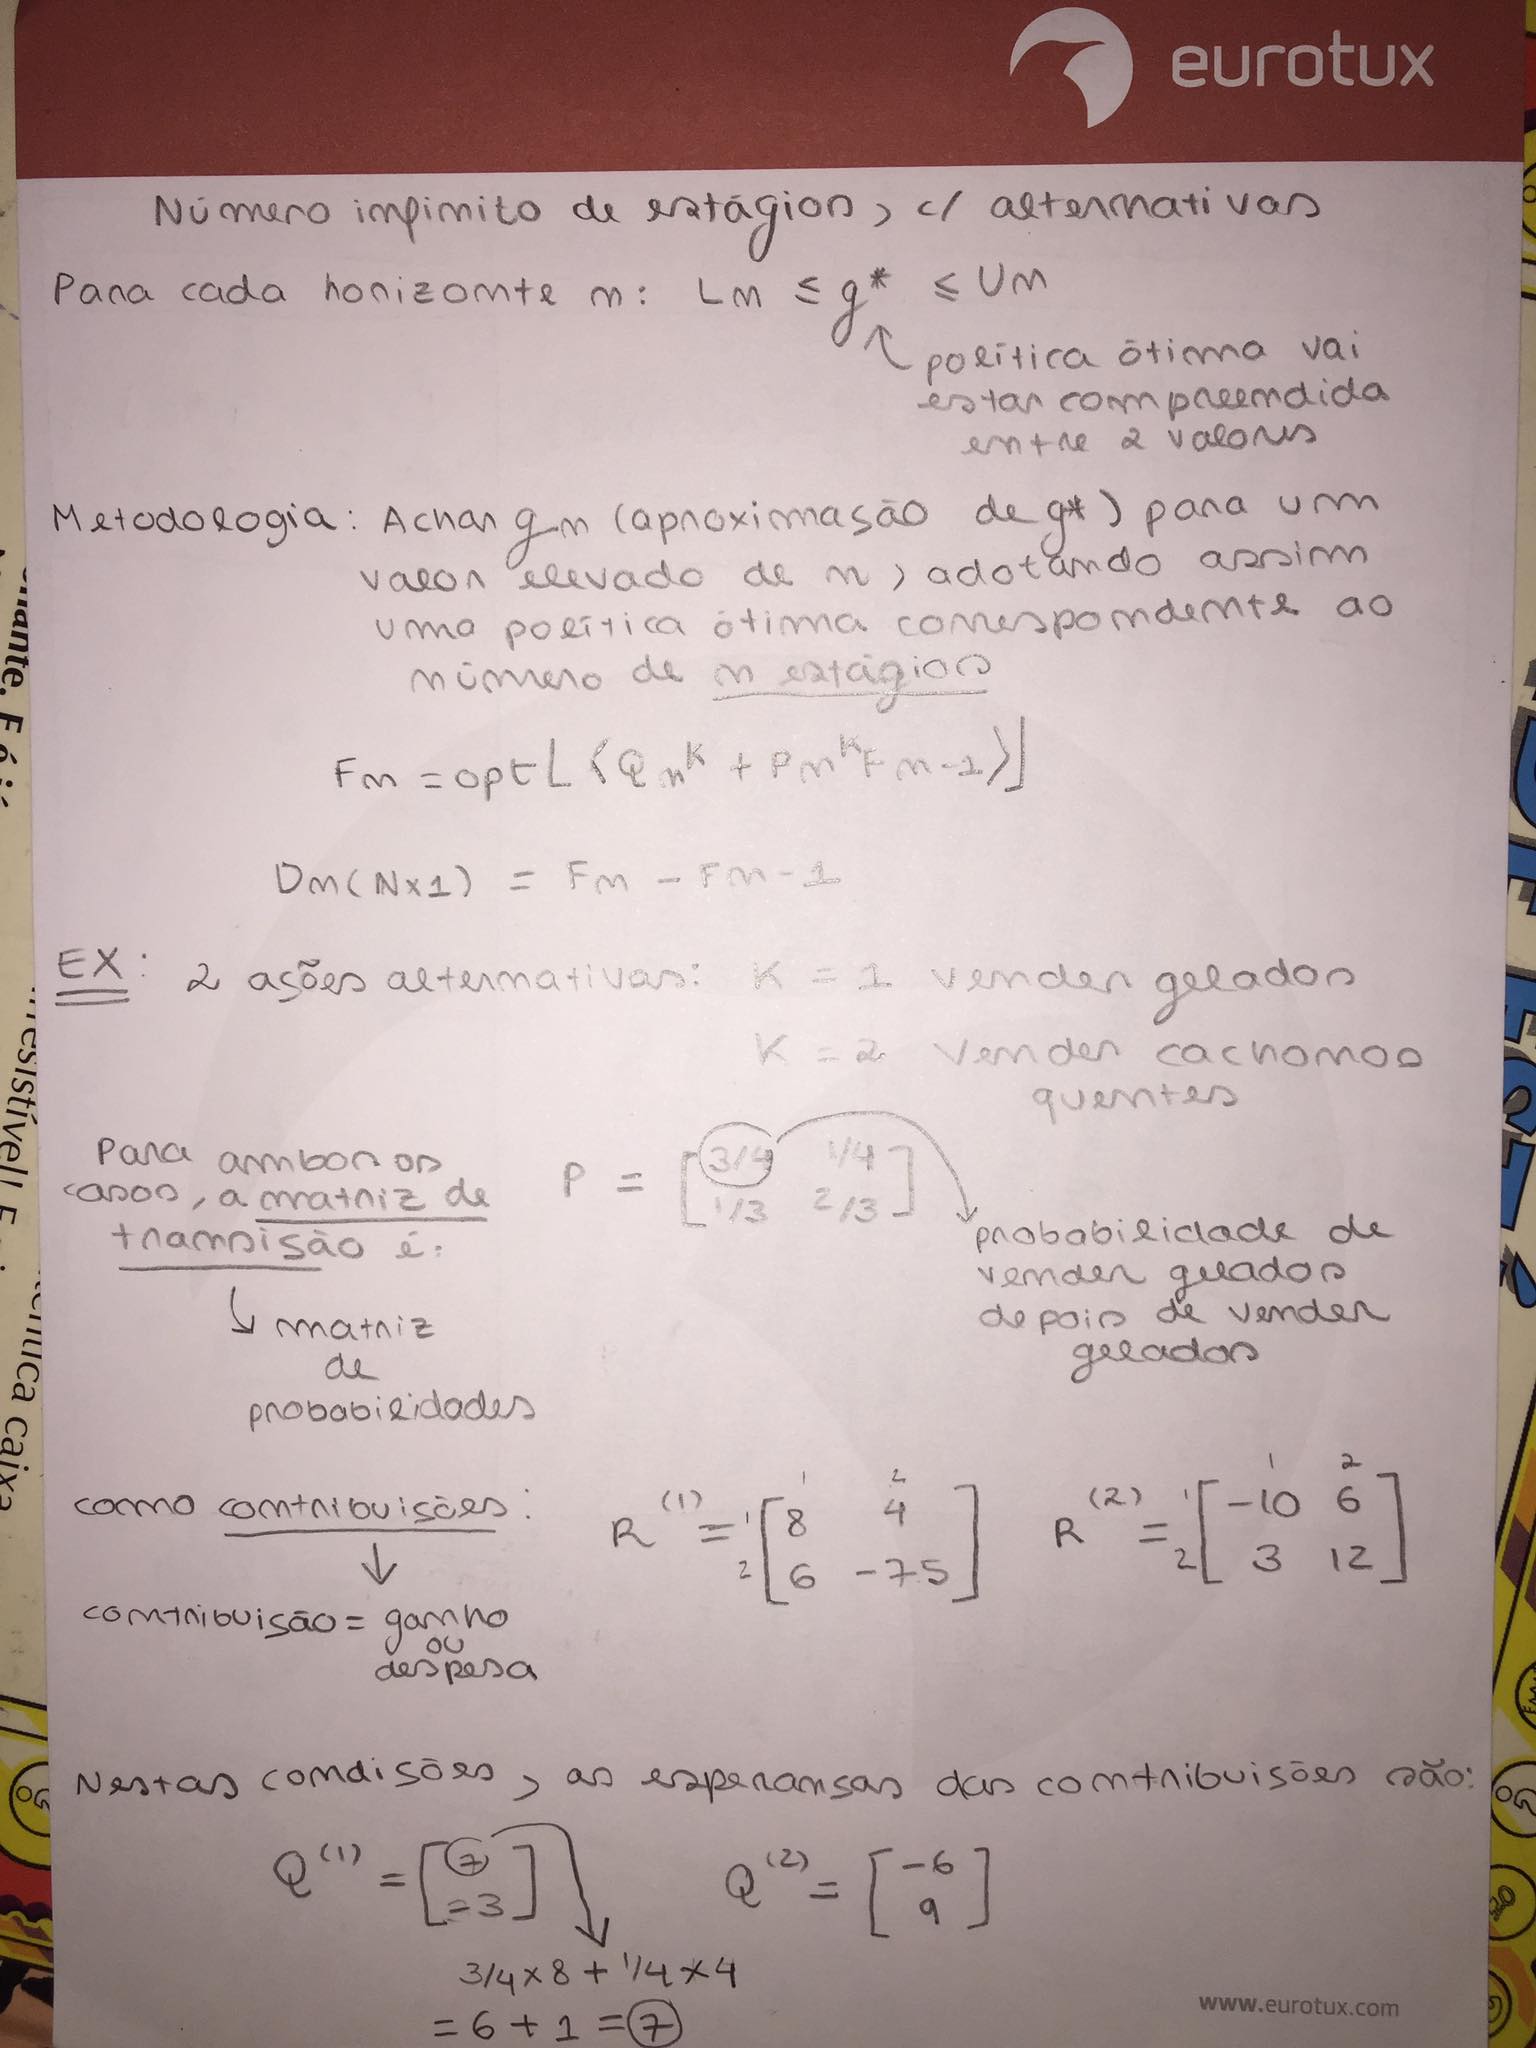 eurotux
Número infinito de estágios, c/ alternativas
Para cada horizonte n: Ln ≤ g* ≤ Un
política ótima vai
estar compreendida
entre 2 valores
Metodologia: Achar gn (aproximação de g*) para um
valor elevado de n, adotando assim
uma política ótima correspondente ao
número de n estágios
Fn = opt[⟨Qn^K + Pn^K Fn-1⟩]
Dn(N×1) = Fn - Fn-1
EX: 2 ações alternativas: K = 1 vender gelados
K = 2 vender cachorros
quentes
Para ambos os
casos, a matriz de
transição é:
P = [3/4 1/4
1/3 2/3]
probabilidade de
vender gelados
depois de vender
gelados
matriz
de
probabilidades
como contribuições:
R^(1) = 1 2
1 [8 4
2 6 -7.5]
R^(2) = 1 2
1 [-10 6
2 3 12]
contribuição = ganho
ou
despesa
Nestas condições, as esperanças das contribuições são:
Q^(1) = [7
-3]
Q^(2) = [-6
9]
3/4×8 + 1/4×4
= 6 + 1 = 7
www.eurotux.com